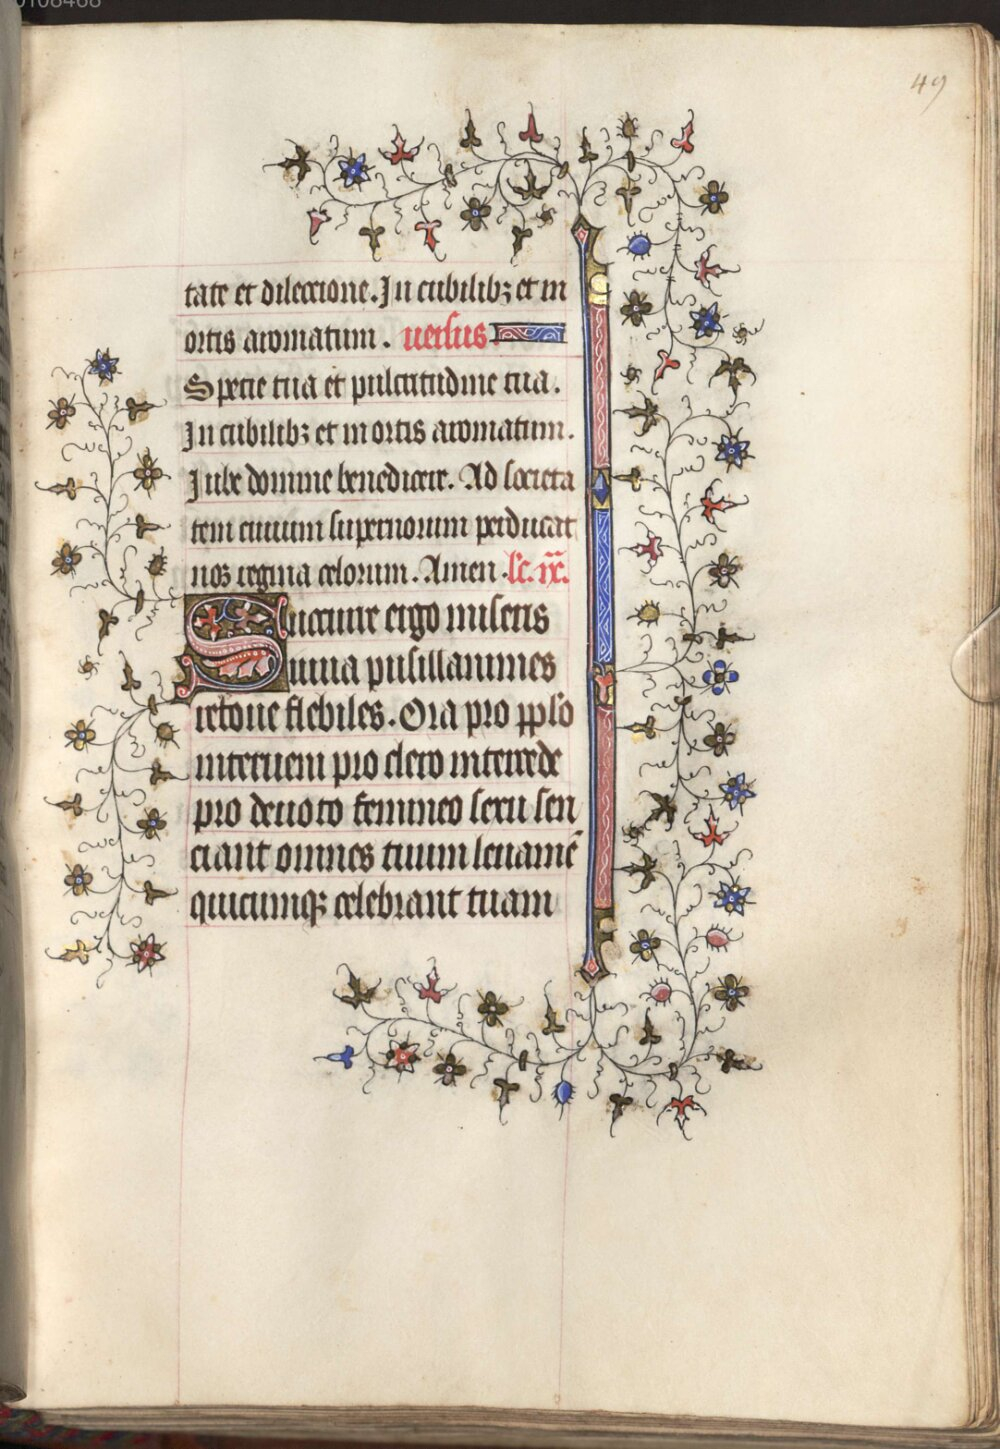 0108468
49
tate et dileccione. In cubilibꝫ et in
ortis aromatum. uersus.
Specie tua et pulcritudine tua.
In cubilibꝫ et in ortis aromatum.
Iube domine benedicere. Ad societa
tem ciuium supernorum perducat
nos regina celorum. Amen. lc̄. ix̄.
Succurre ergo miseris
iuua pusillanimes
refoue flebiles. Ora pro pplo
interueni pro clero intercede
pro deuoto femineo sexu sen
ciant omnes tuum leuamē
quicumqꝫ celebrant tuam